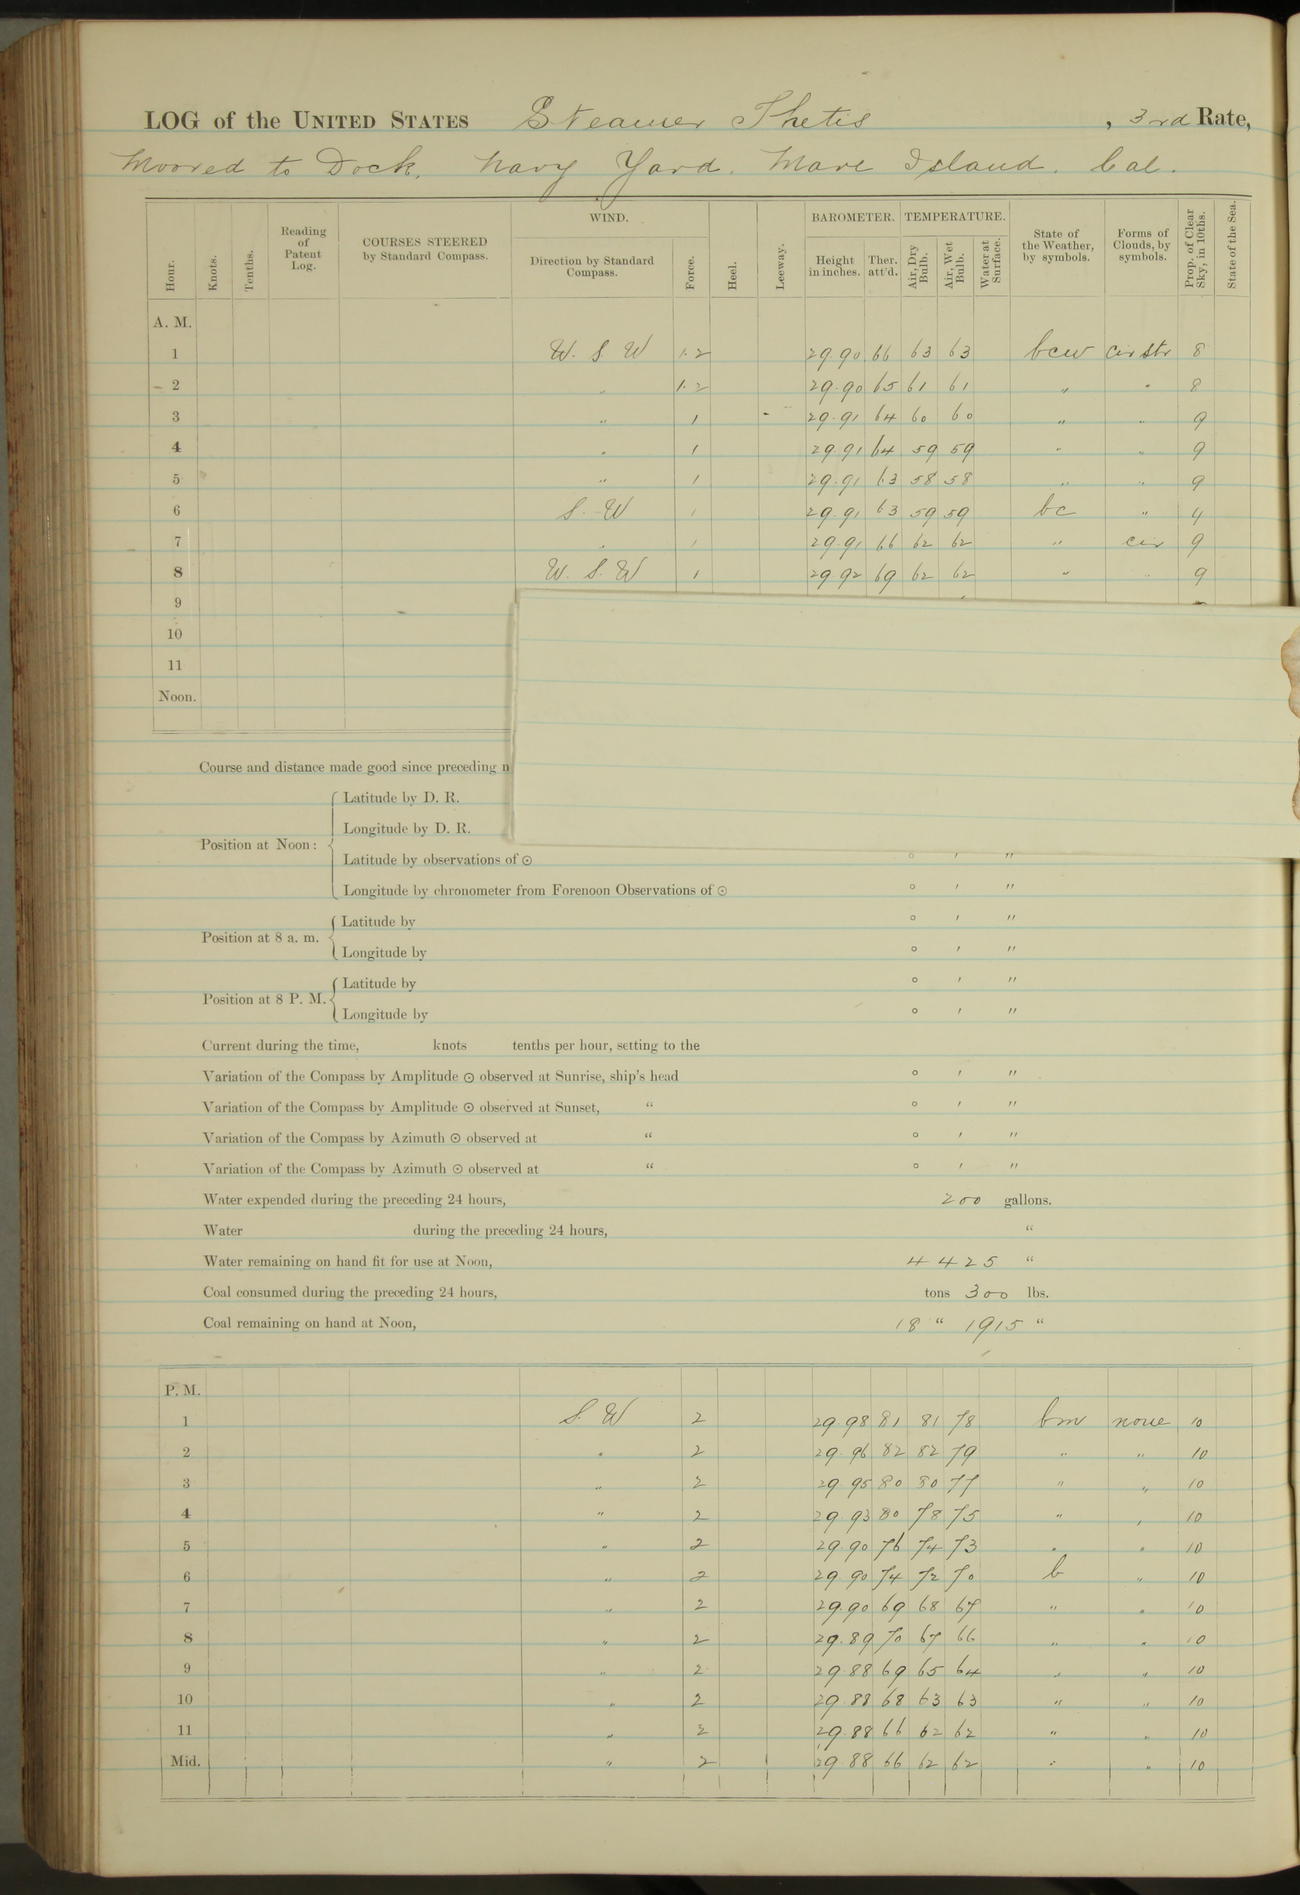 LOG of the UNITED STATES Steamer Thetis, 3rd Rate,
Moored to Dock, Navy Yard. Mare Island. Cal.
Hour. Knots. Tenths. Reading of Patent Log. COURSES STEERED by Standard Compass. WIND. Direction by Standard Compass. Force. Heel. Leeway. BAROMETER. Height in inches. Ther. att'd. TEMPERATURE. Air, Dry Bulb. Air, Wet Bulb. Water at Surface. State of the Weather, by symbols. Forms of Clouds, by symbols. Prop. of Clear Sky, in 10ths. State of the Sea.
A. M.
1 W. S. W 1.2 29.90 66 63 63 bcw cir str 8
2 " 1.2 29.90 65 61 61 " " 8
3 " 1 29.91 64 60 60 " " 9
4 " 1 29.91 64 59 59 " " 9
5 " 1 29.91 63 58 58 " " 9
6 S. W 1 29.91 63 59 59 bc " 4
7 " 1 29.91 66 62 62 " cir 9
8 W. S. W 1 29.92 69 62 62 " " 9
9
10
11
Noon.
Course and distance made good since preceding n
Position at Noon: Latitude by D. R.
Longitude by D. R.
Latitude by observations of ☉ ° ′ ″
Longitude by chronometer from Forenoon Observations of ☉ ° ′ ″
Position at 8 a. m. Latitude by ° ′ ″
Longitude by ° ′ ″
Position at 8 P. M. Latitude by ° ′ ″
Longitude by ° ′ ″
Current during the time, knots tenths per hour, setting to the
Variation of the Compass by Amplitude ☉ observed at Sunrise, ship's head ° ′ ″
Variation of the Compass by Amplitude ☉ observed at Sunset, " ° ′ ″
Variation of the Compass by Azimuth ☉ observed at " ° ′ ″
Variation of the Compass by Azimuth ☉ observed at " ° ′ ″
Water expended during the preceding 24 hours, 200 gallons.
Water during the preceding 24 hours, "
Water remaining on hand fit for use at Noon, 4425 "
Coal consumed during the preceding 24 hours, tons 300 lbs.
Coal remaining on hand at Noon, 18 " 1915 "
P. M.
1 S. W 2 29.98 81 81 78 bm none 10
2 " 2 29.96 82 82 79 " " 10
3 " 2 29.95 80 80 77 " " 10
4 " 2 29.93 80 78 75 " " 10
5 " 2 29.90 76 74 73 " " 10
6 " 2 29.90 74 72 70 b " 10
7 " 2 29.90 69 68 67 " " 10
8 " 2 29.89 70 67 66 " " 10
9 " 2 29.88 69 65 64 " " 10
10 " 2 29.88 68 63 63 " " 10
11 " 2 29.88 66 62 62 " " 10
Mid. " 2 29.88 66 62 62 " " 10